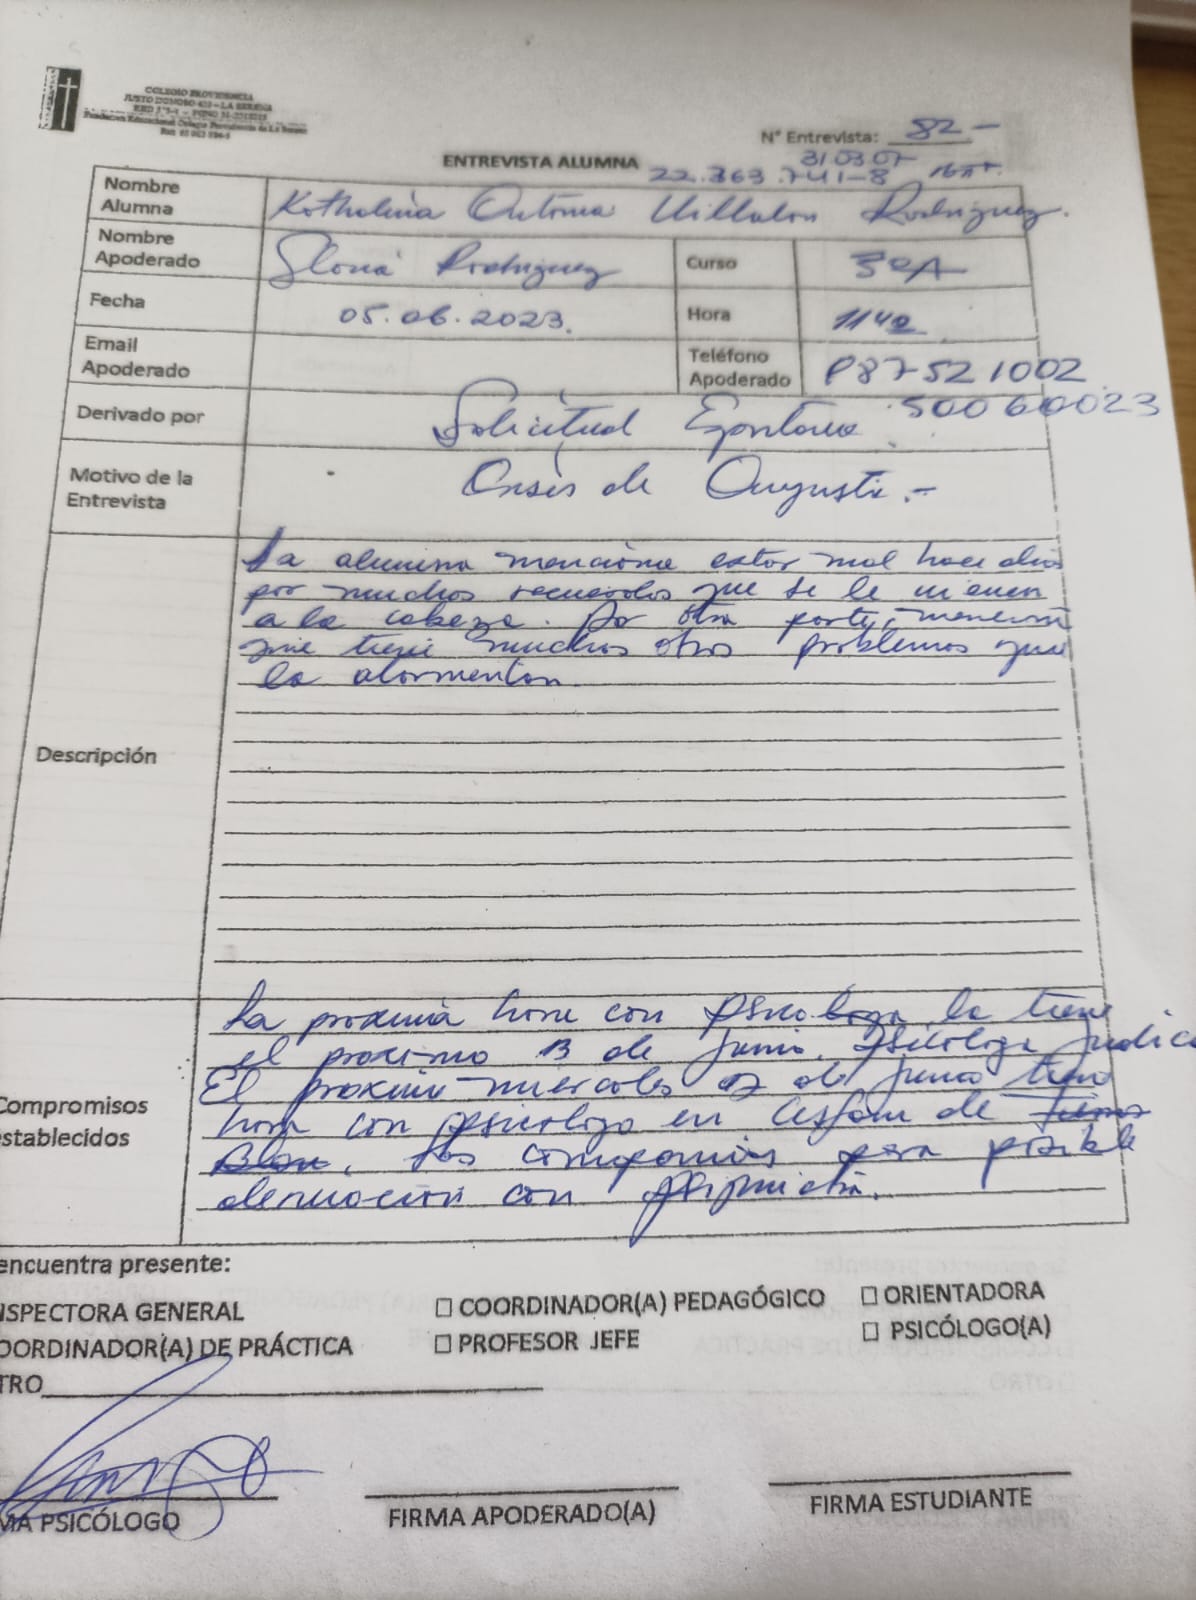 COLEGIO PROVIDENCIA
JUSTO DONOSO 420 – LA SERENA
Fundación Educacional Colegio Providencia de La Serena
N° Entrevista: 82 –
ENTREVISTA ALUMNA
31.03.07
22.363.741-8
Nombre Alumna
Katholina Antonia Villalon Rodriguez.
Nombre Apoderado
Gloria Rodriguez
Curso
3°A
Fecha
05.06.2023.
Hora
1142
Email Apoderado
Teléfono Apoderado
P87521002
50060023
Derivado por
Solicitud Espontanea.
Motivo de la Entrevista
Crisis de Angustia.-
Descripción
La alumna menciona estar mal hace dias
por muchos recuerdos que se le vienen
a la cabeza. Por otra parte, menciona
que tiene muchos otros problemas que
la atormentan.
Compromisos
establecidos
La proxima hora con psicologa la tiene
el proximo 13 de Junio. Psicologa Judic
El proximo miercoles 07 de Junio tiene
hora con psicologo en Cesfam de
para posible
derivacion con
encuentra presente:
NSPECTORA GENERAL
☐ COORDINADOR(A) PEDAGÓGICO
☐ ORIENTADORA
OORDINADOR(A) DE PRÁCTICA
☐ PROFESOR JEFE
☐ PSICÓLOGO(A)
TRO
MA PSICÓLOGO
FIRMA APODERADO(A)
FIRMA ESTUDIANTE